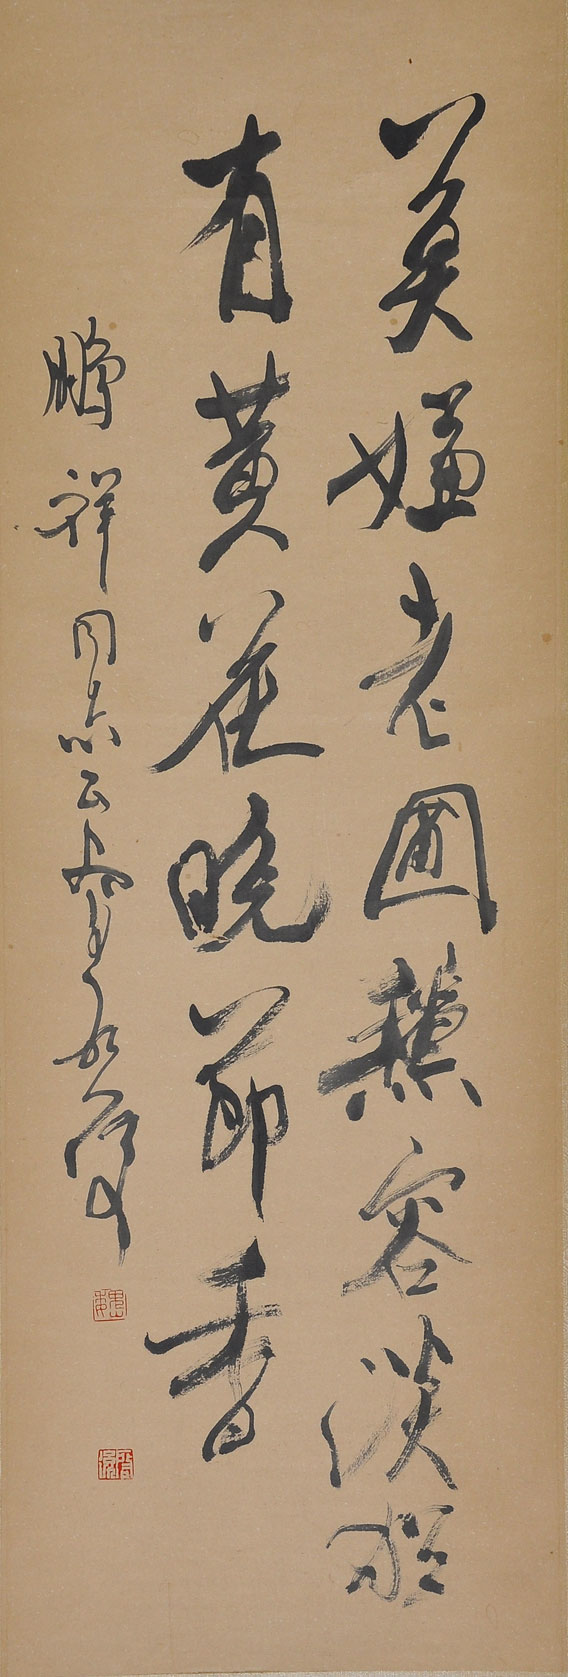 莫嫌老圃龝容淡猶
有黄花晚節香
鵬祥同志